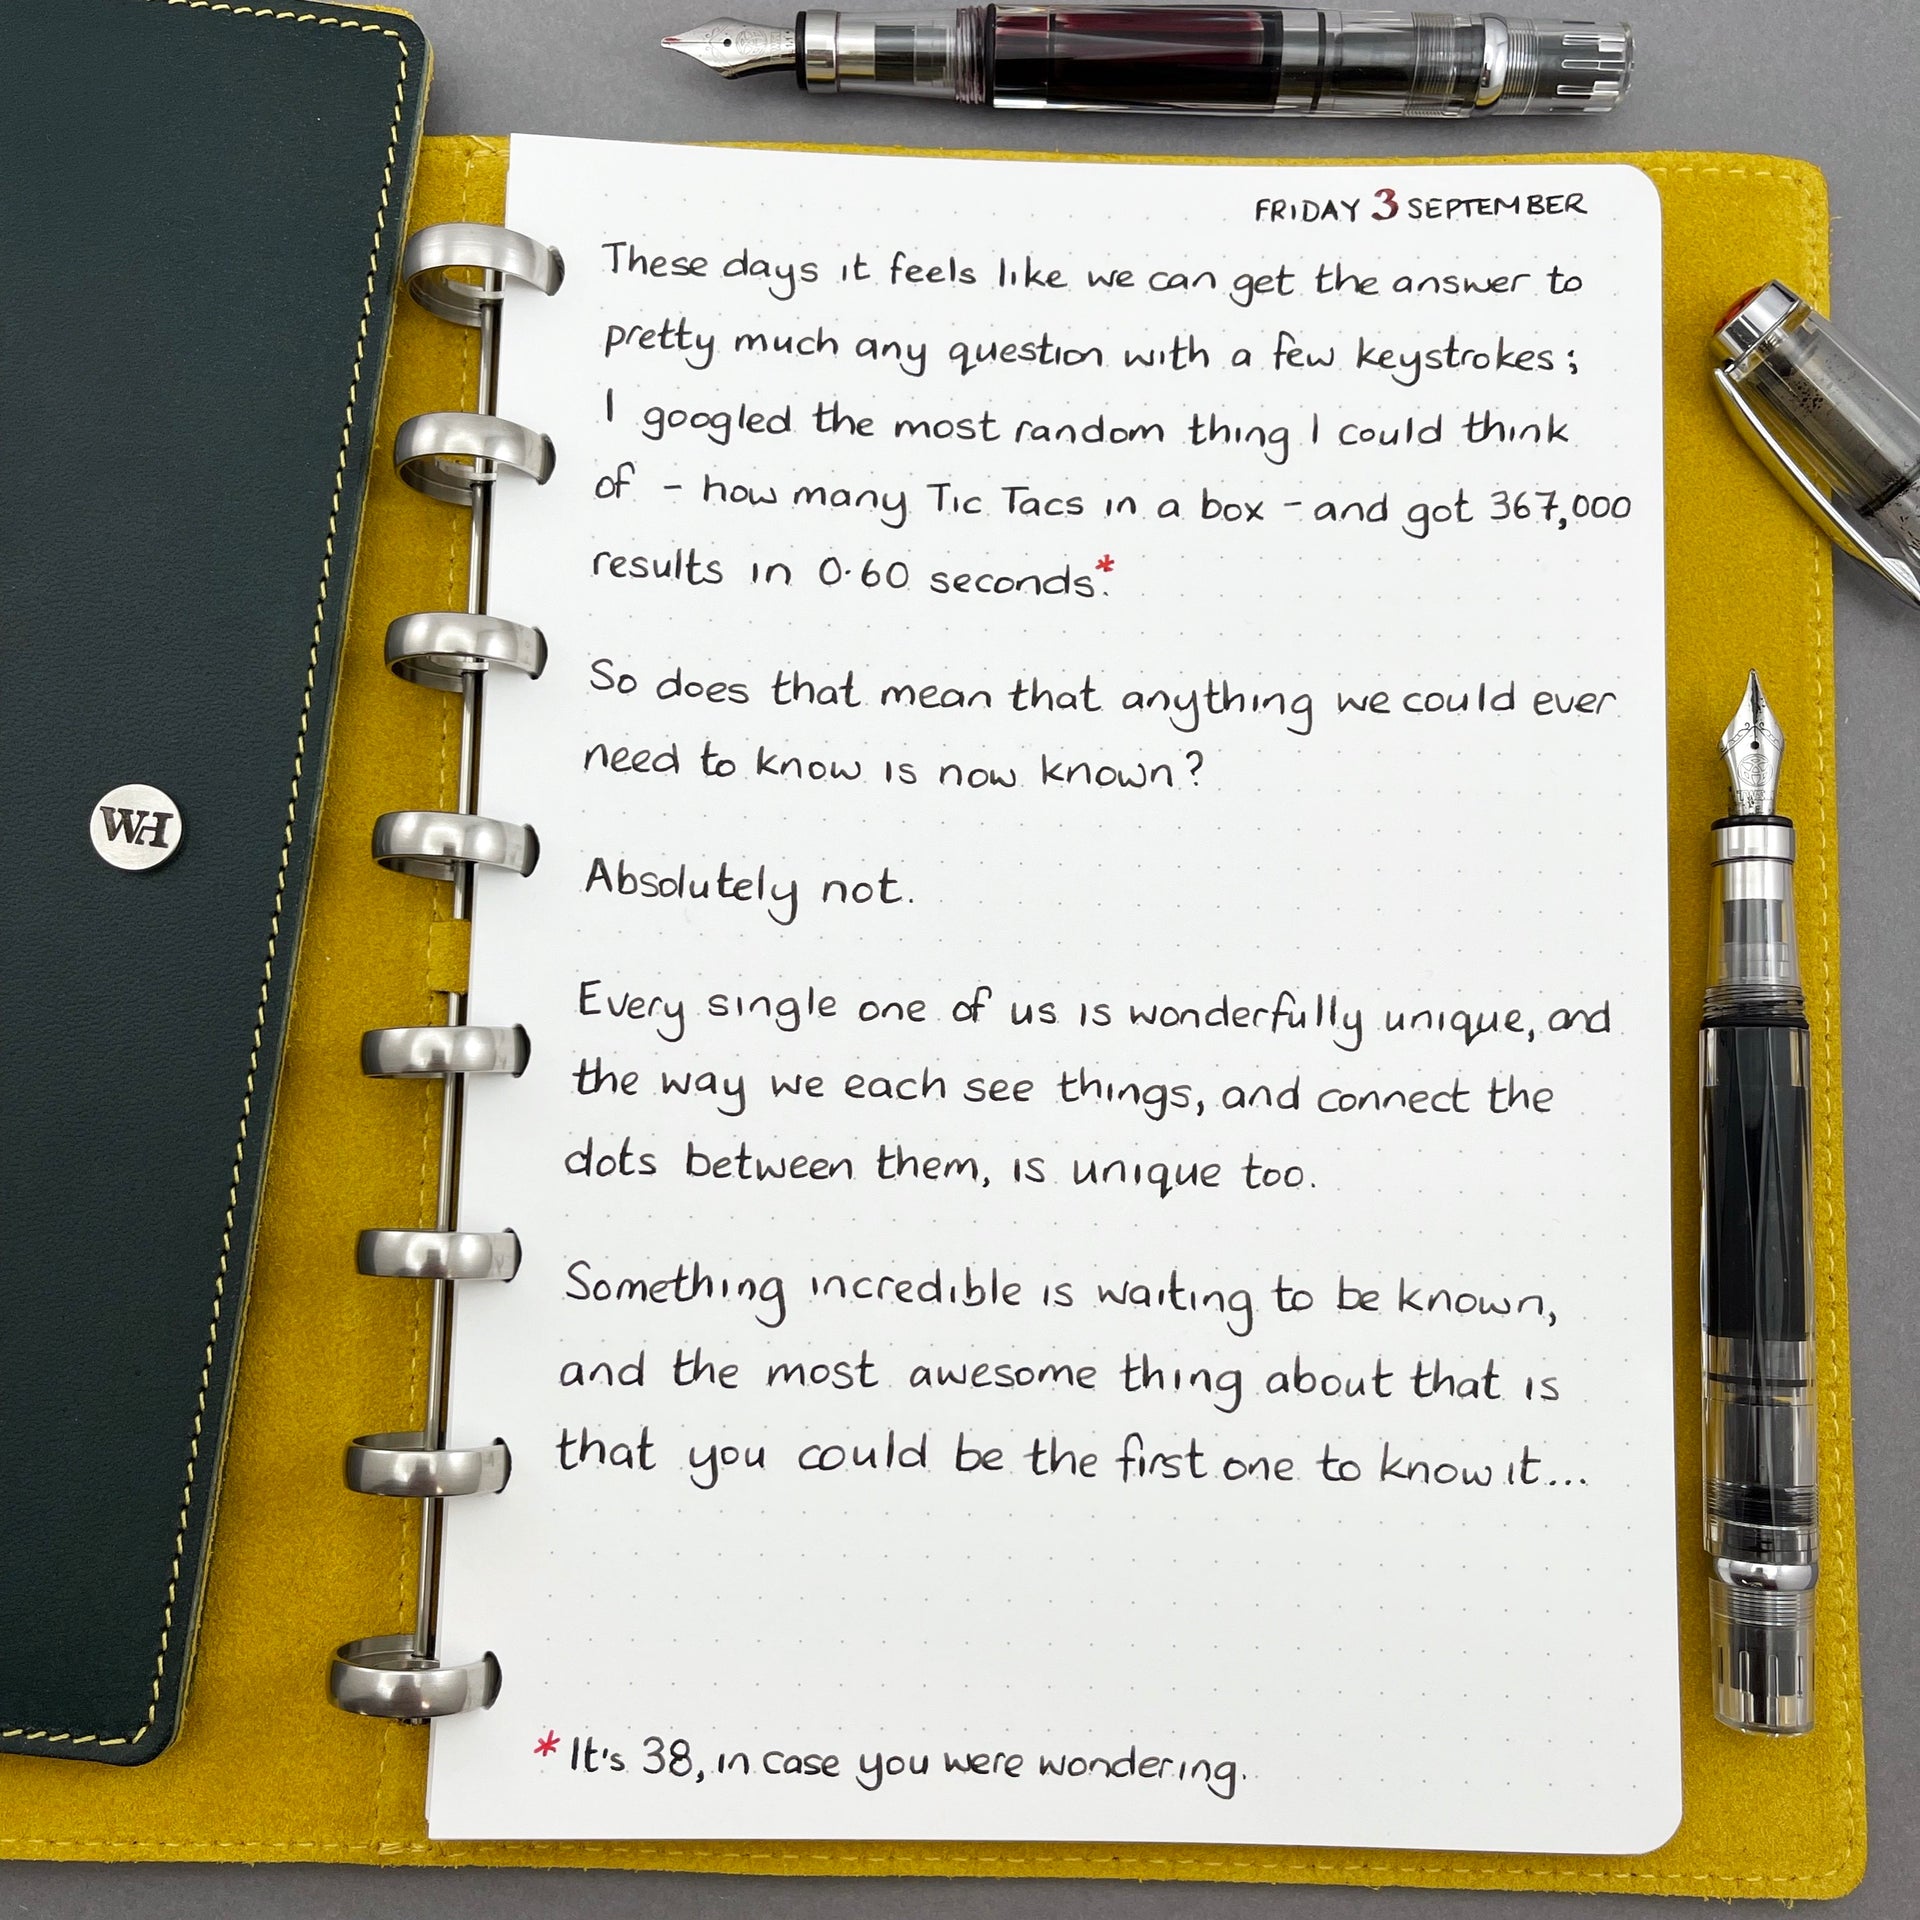 FRIDAY 3 SEPTEMBER
These days it feels like we can get the answer to
pretty much any question with a few keystrokes;
I googled the most random thing I could think
of - how many Tic Tacs in a box - and got 367,000
results in 0.60 seconds.*
So does that mean that anything we could ever
need to know is now known?
Absolutely not.
Every single one of us is wonderfully unique, and
the way we each see things, and connect the
dots between them, is unique too.
Something incredible is waiting to be known,
and the most awesome thing about that is
that you could be the first one to know it...
* It's 38, in case you were wondering.
WH